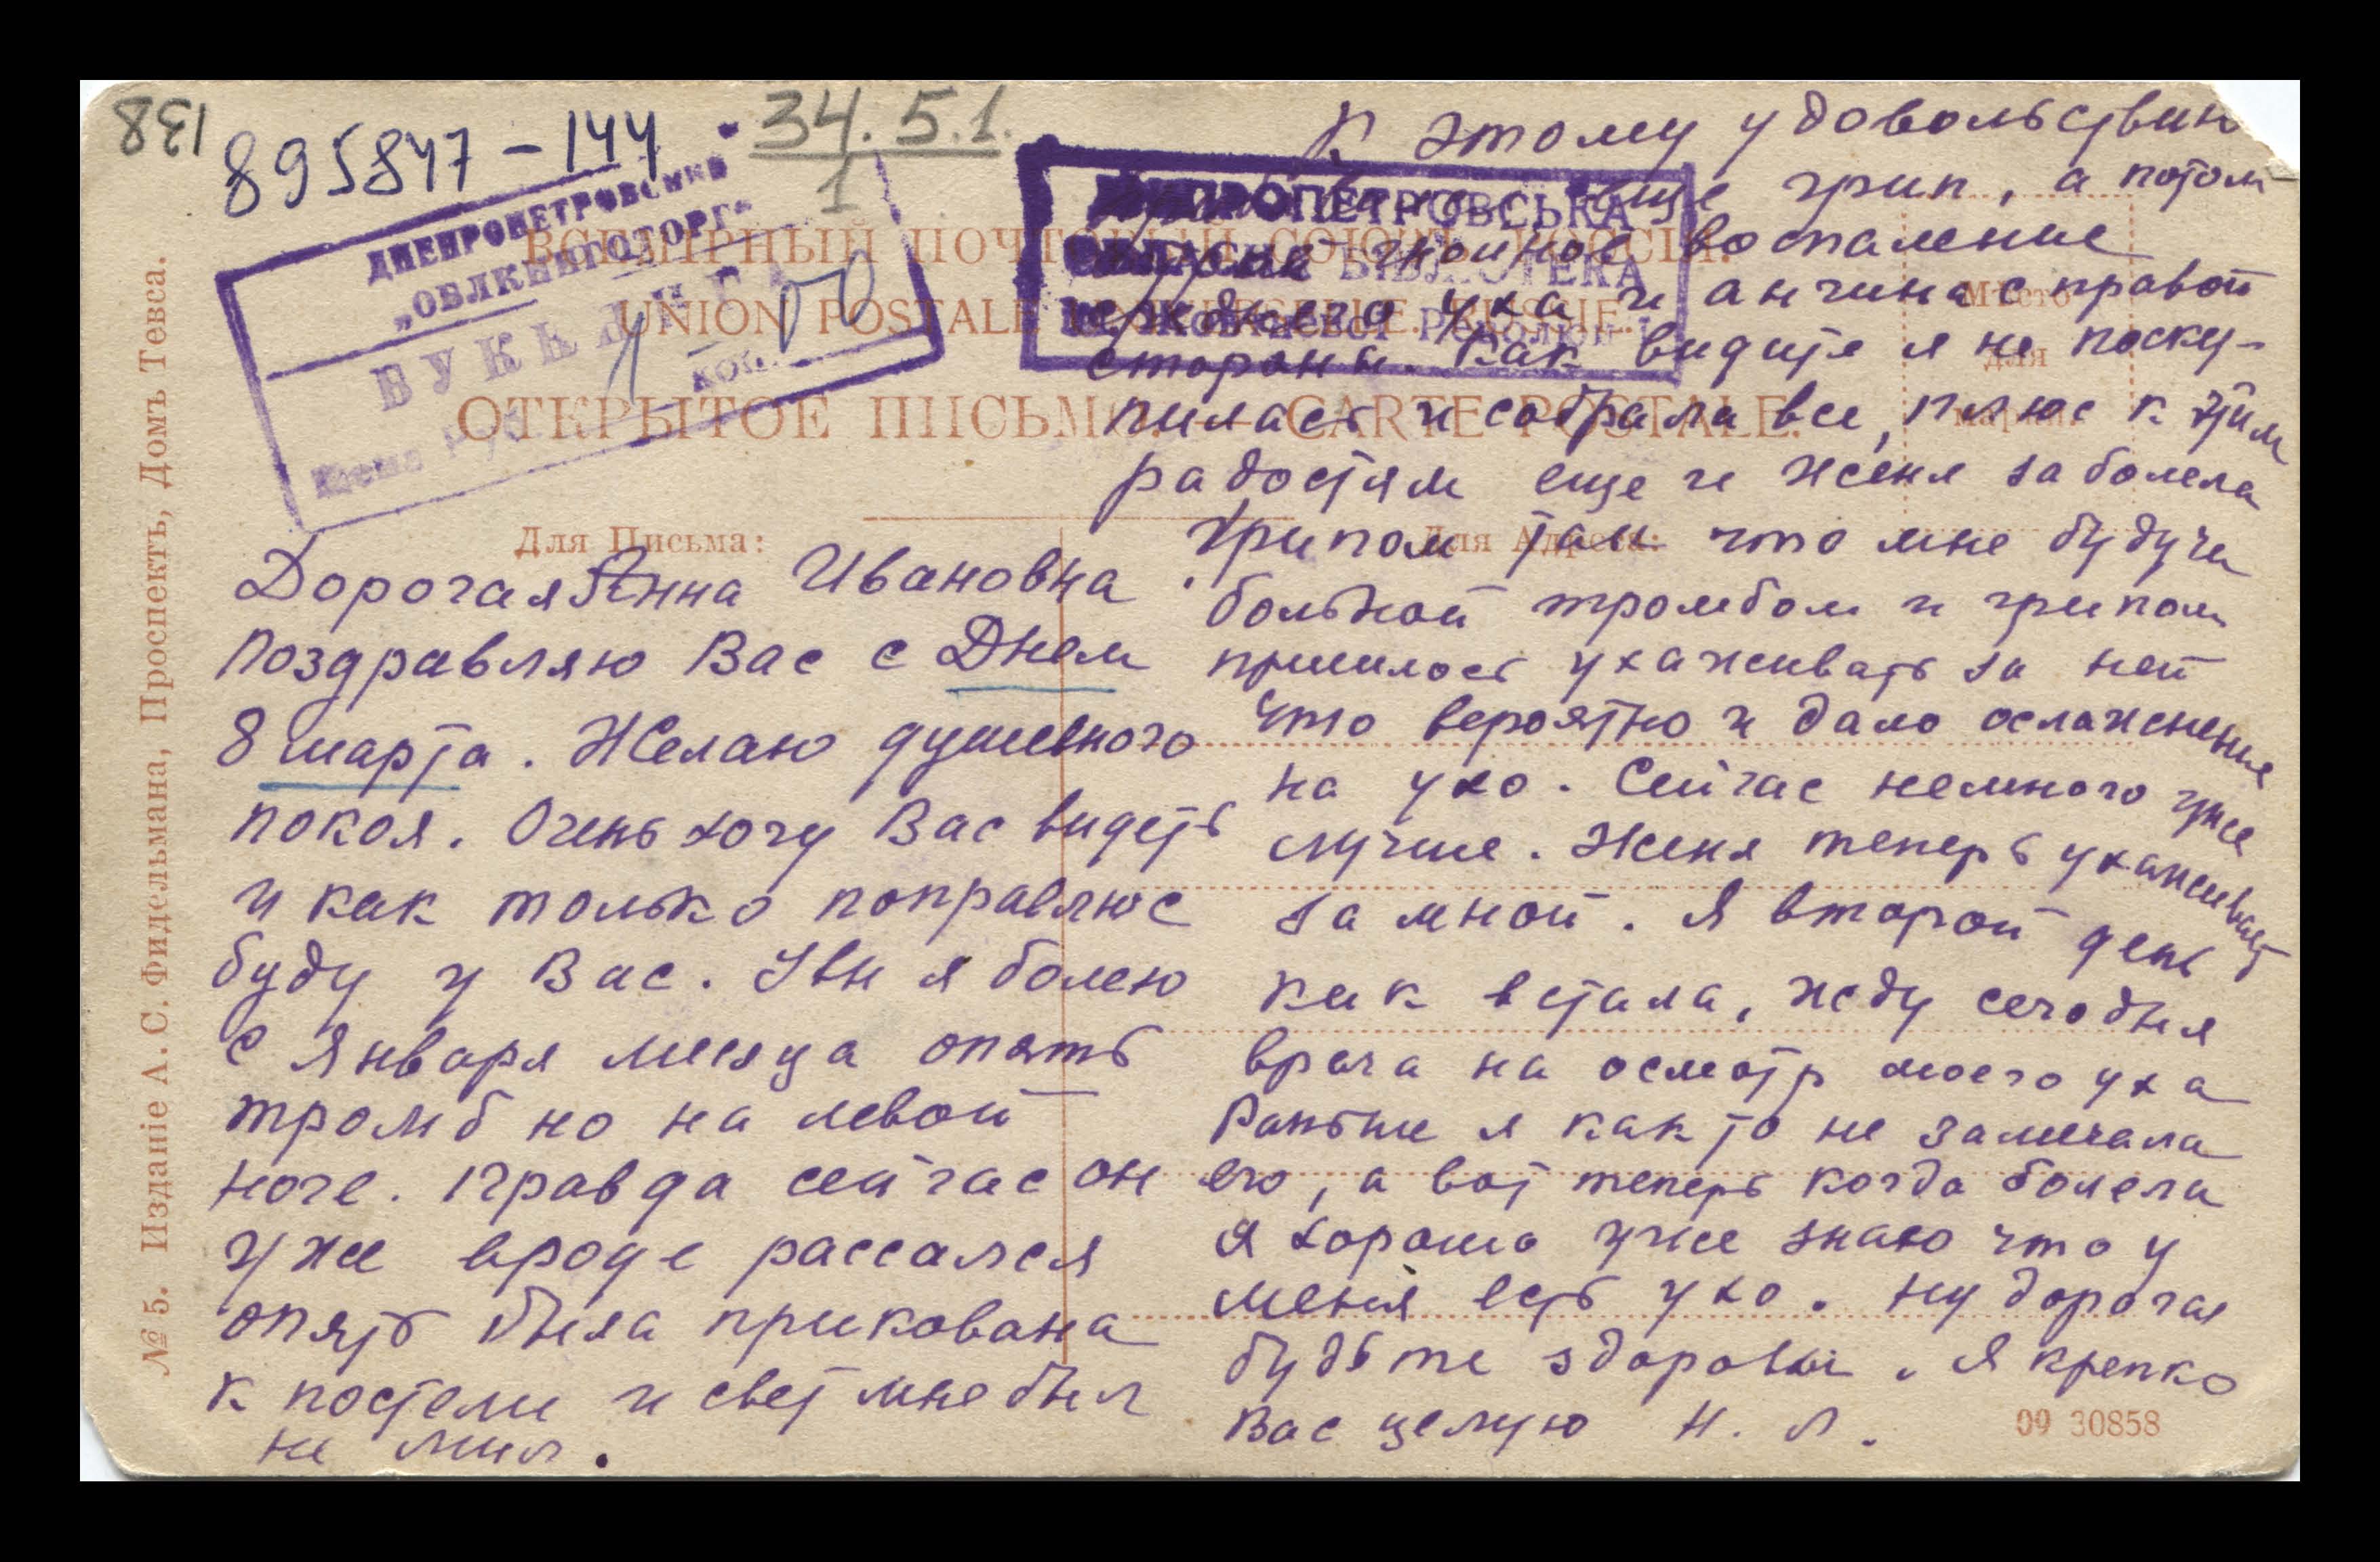 138
895847-144
34.5.1.
1
ДНЕПРОПЕТРОВСКИЙ
„ОБЛКНИГОТОРГ"
БУКИНИГА
1-00
коп.
ДНІПРОПЕТРОВСЬКА
ОБЛАСНА БІБЛІОТЕКА
ВСЕМІРНЫЙ ПОЧТОВЫЙ СОЮЗЪ. РОССІЯ.
UNION POSTALE UNIVERSELLE. RUSSIE.
ОТКРЫТОЕ ПИСЬМО. — CARTE POSTALE.
Мѣсто
для
марки.
Для Письма:
Для Адреса:
№ 5. Изданіе А. С. Фидельмана, Проспектъ, Домъ Тевса.
Дорогая Анна Ивановна
Поздравляю Вас с Днем
8 марта. Желаю душевного
покоя. Очень хочу Вас видеть
и как только поправлюс
буду у Вас. Увы я болею
с Января месяца опять
тромб но на левой
ноге. Правда сейчас он
уже вроде рассался
опять была прикована
к постели и свет мне был
не мил.
К этому удовольствию
еще грип, а потом
гнойное воспаление
среднего уха и ангина с правой
стороны. Как видите я не поску-
пилась и собрала все, плюс к этим
радостям еще и Женя заболела
грипом так что мне будучи
больной тромбом и грипом
пришлось ухаживать за ней
что вероятно и дало осложнения
на ухо. Сейчас немного уже
лучше. Женя теперь ухаживает
за мной. Я второй день
как встала, жду сегодня
врача на осмотр моего уха
Раньше я как то не замечала
его, а вот теперь когда болела
я хорошо уже знаю что у
меня есть ухо. Ну дорогая
будьте здоровы. Я крепко
Вас целую Н. Л.
09 30858